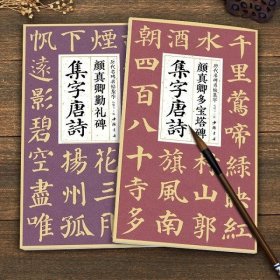 煙花三月
下揚州孤
帆遠影碧空盡唯
顏真卿勤禮碑
集字唐詩
千里鶯啼綠映紅
水村山郭
酒旗風南
朝四百八十寺多
顏真卿多寶塔碑
集字唐詩